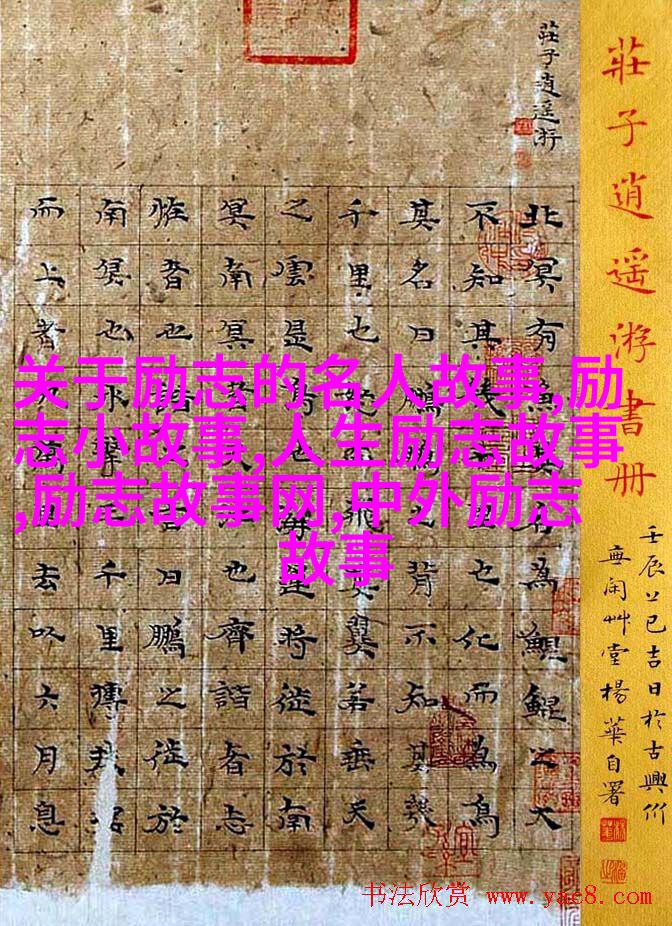 莊子逍遥游書册
壬辰上巳吉日於古興竹
無闲艸堂楊華自署
莊子逍遥游
北冥有魚其名為鯤鯤之大
不知其幾千里也化而為鳥
其名曰鵬鵬之背不知其幾
千里也怒而飛其翼若垂天
之雲是鳥也海運將徙於南
冥南冥者天池也齊諧者志
恠者也諧之言曰鵬之徙於
南冥也水擊三千里摶扶摇
而上者九萬里去以六月息
关于励志的名人故事,励
志小故事,人生励志故事
,励志故事网,中外励志
故事
书法欣赏 www.yac8.com